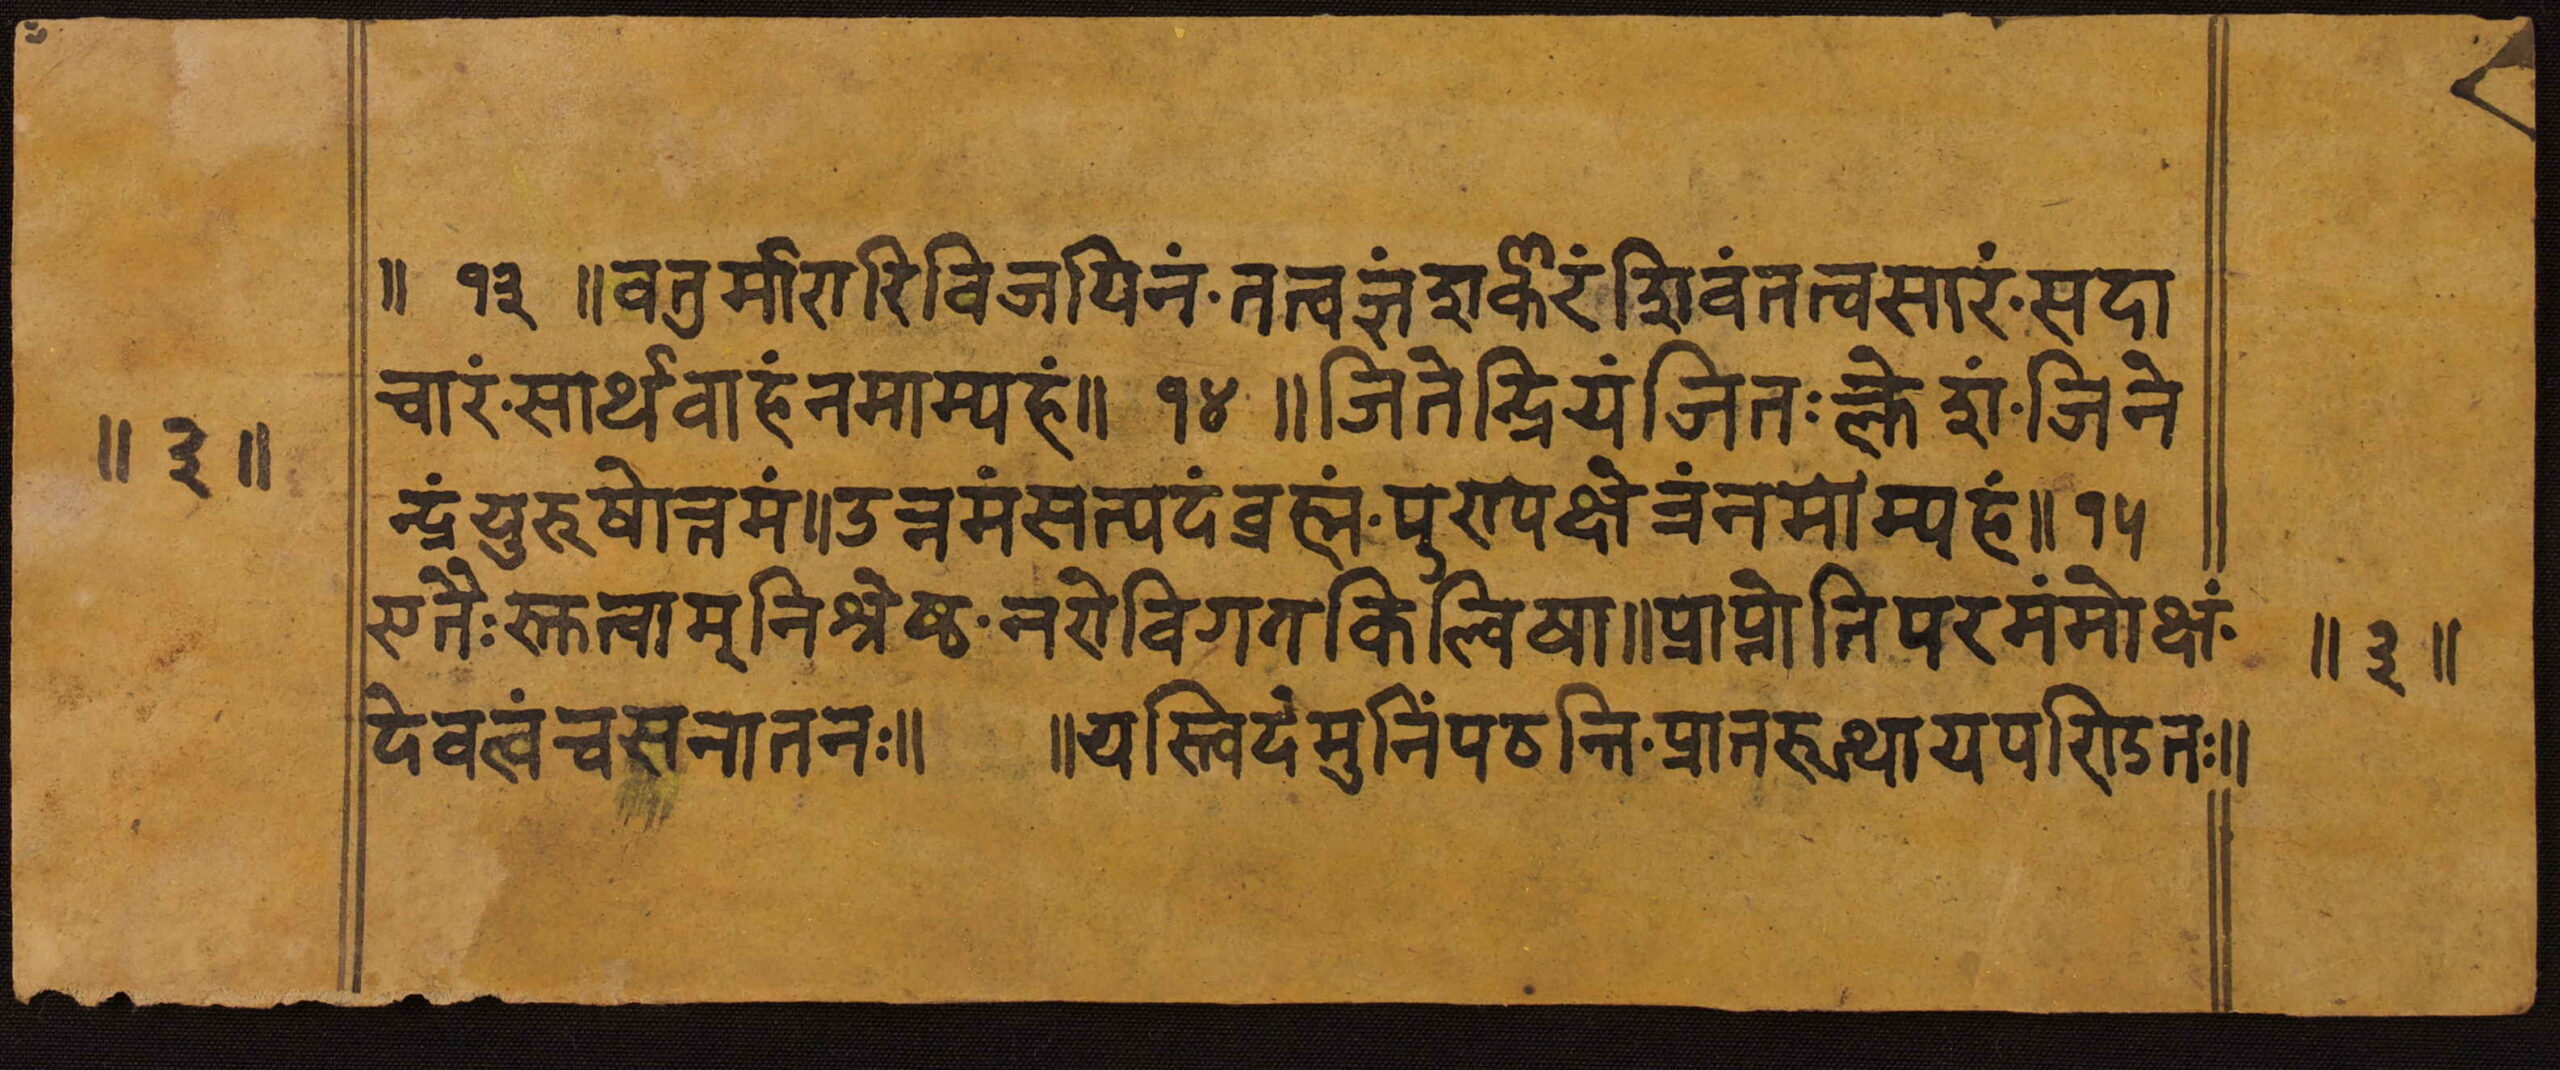 ॥ १३ ॥ वतुर्मारारिविजयिनं·तत्वज्ञंशर्करं शिवंतत्वसारं·सदा
चारं·सार्थवाहंनमाम्यहं॥ १४ ॥ जितेन्द्रियं जितःक्लेशं·जिने
॥ ३ ॥
न्द्रंयुरुषोत्तमं॥उत्तमंसत्पदंब्रह्मं·पुण्यक्षेत्रंनमाम्यहं॥ १५
एतैःस्कत्वामुनिश्रेष्ठ·नरोविगतकिल्विषा॥प्राप्नोतिपरमंमोक्षं·
॥ ३ ॥
देवत्वंचसनातनः॥ ॥यस्त्विदंमुनिंपठन्ति·प्रातरुत्थायपण्डितः॥